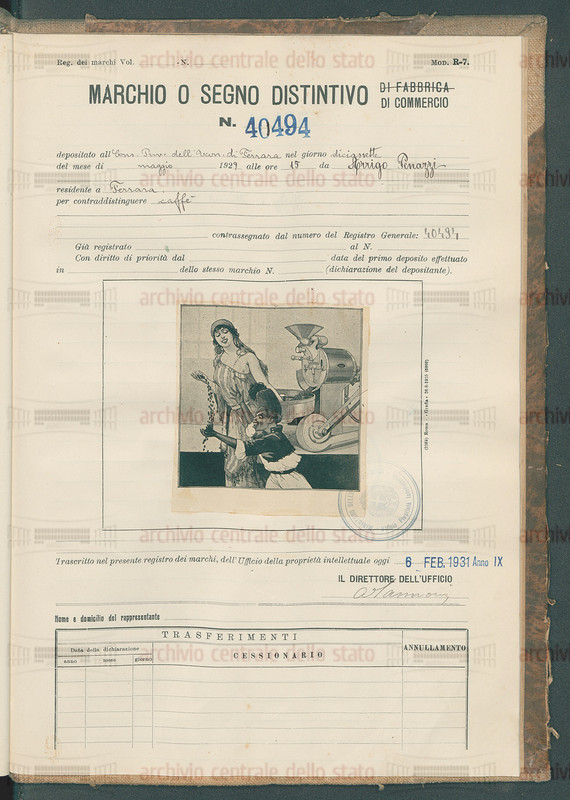 Reg. dei marchi Vol. N. MOD. R-7.
MARCHIO O SEGNO DISTINTIVO DI FABBRICA DI COMMERCIO
N. 40494
depositato all' di Ferrara nel giorno diciasette
del mese di maggio 1929 alle ore 15 da Arrigo Penazzi
residente a Ferrara
per contraddistinguere caffè
contrassegnato dal numero del Registro Generale: 40494
Già registrato al N.
Con diritto di priorità dal data del primo deposito effettuato
in dello stesso marchio N. (dichiarazione del depositante).
Trascritto nel presente registro dei marchi, dell'Ufficio della proprietà intellettuale oggi 6 FEB. 1931 Anno IX
IL DIRETTORE DELL'UFFICIO
Nome e domicilio del rappresentante
TRASFERIMENTI
Data della dichiarazione
anno mese giorno
CESSIONARIO
ANNULLAMENTO
archivio centrale dello stato